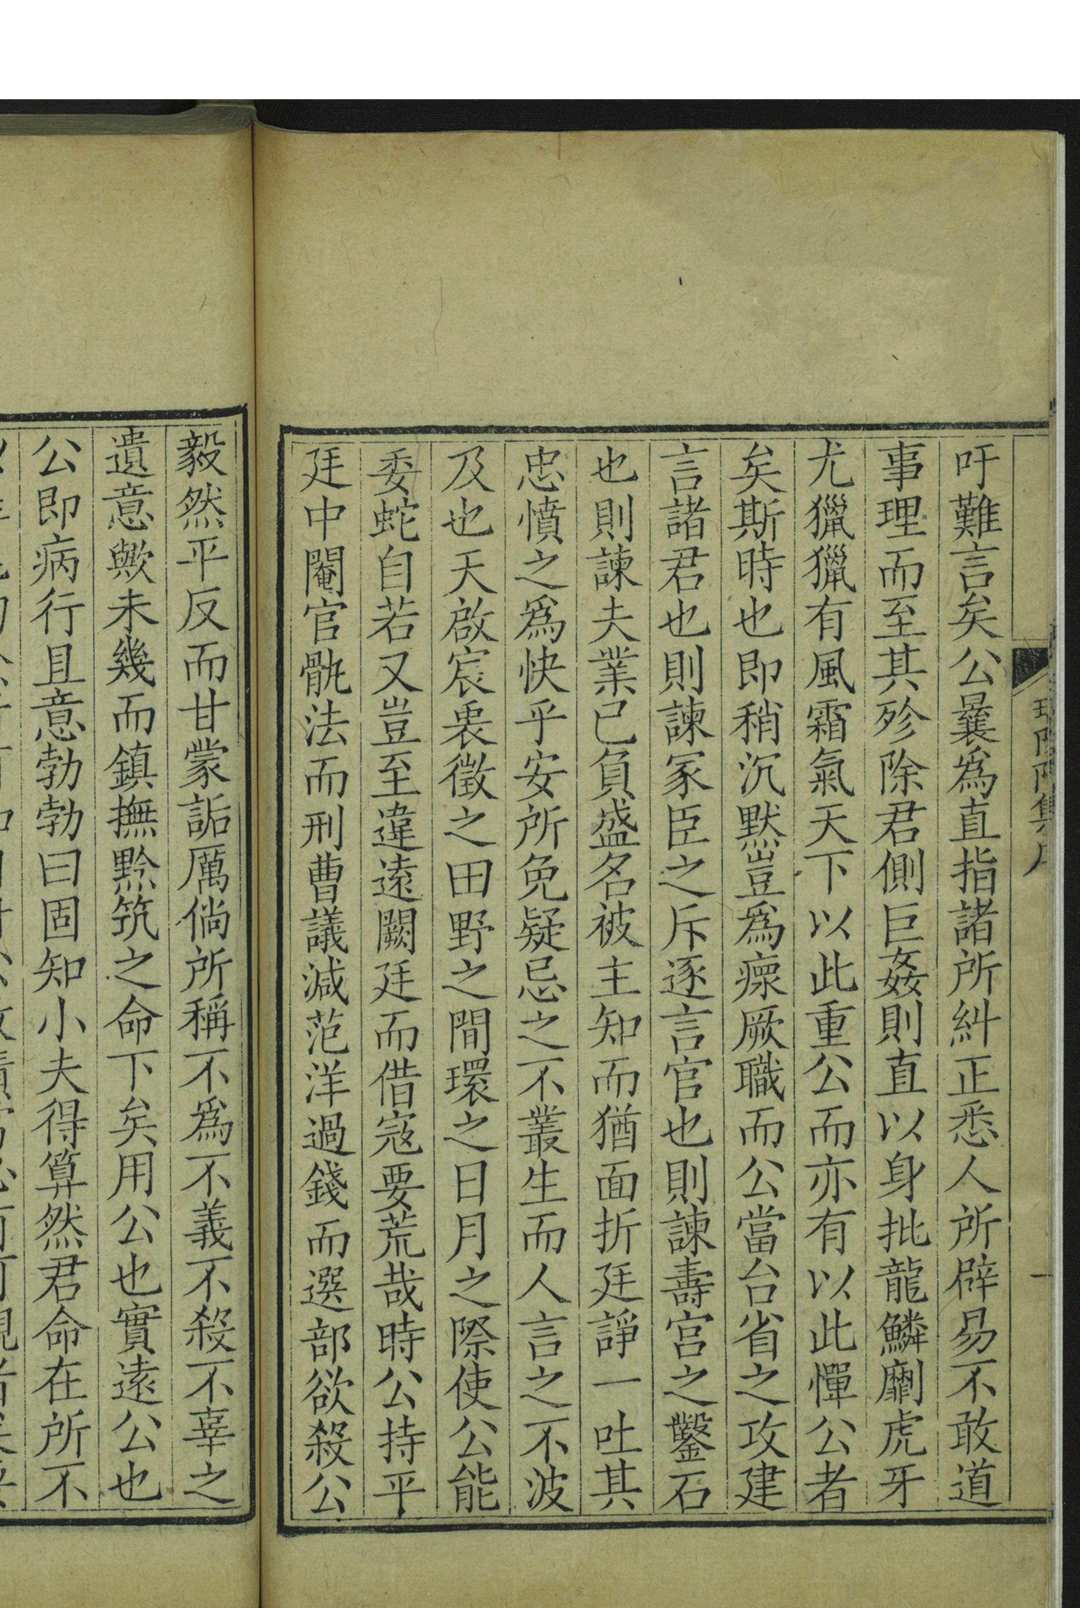 吁難言矣公曩爲直指諸所糾正悉人所辟易不敢道
事理而至其殄除君側巨姦則直以身批龍鱗劘虎牙
尤獵獵有風霜氣天下以此重公而亦有以此憚公者
矣斯時也即稍沉默豈爲瘝厥職而公當台省之攻建
言諸君也則諫冢臣之斥逐言官也則諫壽宮之鑿石
也則諫夫業已負盛名被主知而猶面折廷諍一吐其
忠憤之爲快乎安所免疑忌之不叢生而人言之不波
及也天啟宸衷徵之田野之間環之日月之際使公能
委蛇自若又豈至違遠闕廷而借寇要荒哉時公持平
廷中閹官骫法而刑曹議減范洋過錢而選部欲殺公
毅然平反而甘蒙詬厲倘所稱不爲不義不殺不辜之
遺意歟未幾而鎮撫黔筑之命下矣用公也實遠公也
公即病行且意勃勃曰固知小夫得算然君命在所不